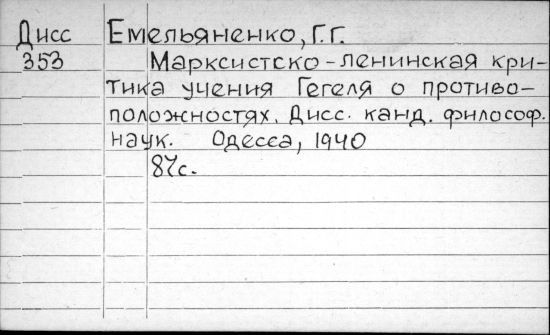 Дисс Емельяненко, Г.Г.
353 Марксистско-ленинская кри-
тика учения Гегеля о противо-
положностях. Дисс. канд. философ.
наук. Одесса, 1940
87с.